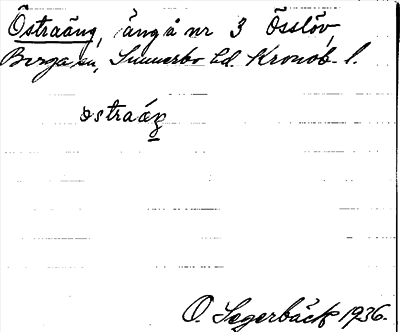 Östraäng, äng å nr 3 Össlöv,
Berga sn, Sunnerbo hd. Kronob. l.
ɷstraáŋ
O. Segerbäck 1936.